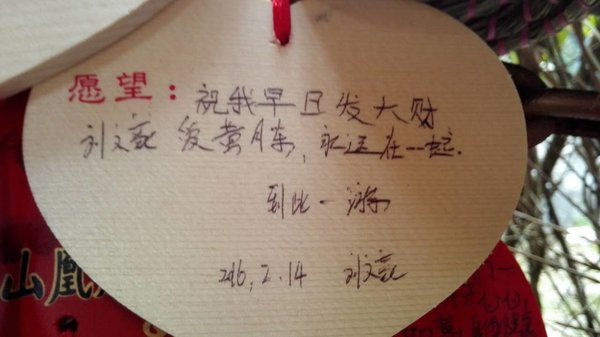 愿望：祝我早日发大财
刘文豪 爱黄胜，永远在一起.
到此一游
2016.2.14 刘文豪
山凰